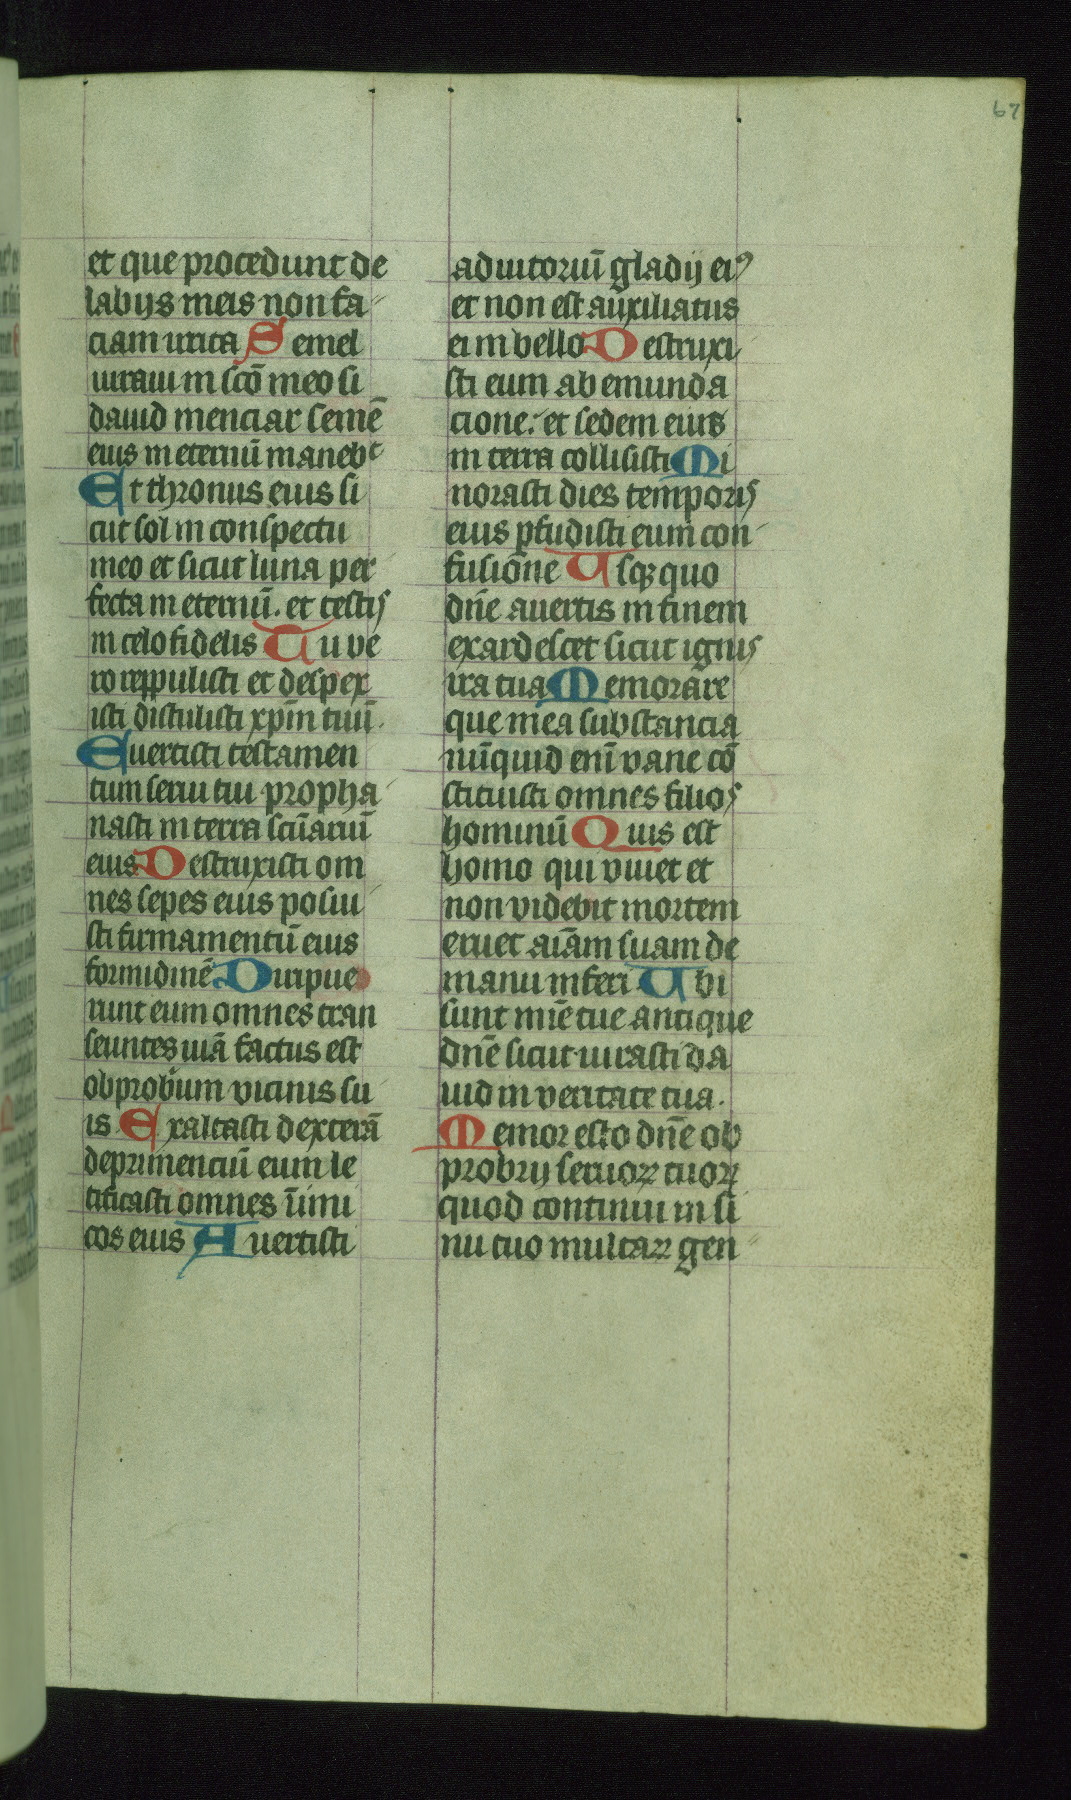 67
et que procedunt de
labijs meis non fa
ciam irrita Semel
iuraui in scō meo si
dauid menciar semē
eius in eternū manebᵗ
Et thronus eius si
cut sol in conspectu
meo et sicut luna per
fecta in eternū. et testis
in celo fidelis Tu ve
ro reppulisti et despex
isti distulisti xp̄m tuū.
Euertisti testamen
tum serui tui propha
nasti in terra sc̄uariū
eius Destruxisti om
nes sepes eius posui
sti firmamentū eius
formidinē Diripue
runt eum omnes tran
seuntes uiā factus est
obprobrium vicinis su
is. Exaltasti dexterā
deprimenciū eum le
tificasti omnes īimi
cos eius Auertisti
adiutoriū gladij eiꝰ
et non est auxiliatus
ei in bello Destruxi
sti eum ab emunda
cione. et sedem eius
in terra collisisti Mi
norasti dies temporis
eius ꝑfudisti eum con
fusiōne Usqꝫ quo
dn̄e auertis in finem
exardescet sicut ignis
ira tua Memorare
que mea substancia
nūquid enī vane cō
stituisti omnes filios
hominū Quis est
homo qui viuet et
non videbit mortem
eruet aīam suam de
manu inferi Ubi
sunt mīe tue antique
dn̄e sicut iurasti da
uid in veritate tua.
Memor esto dn̄e ob
probrij seruoꝝ tuoꝝ
quod continui in si
nu tuo multaꝝ gen